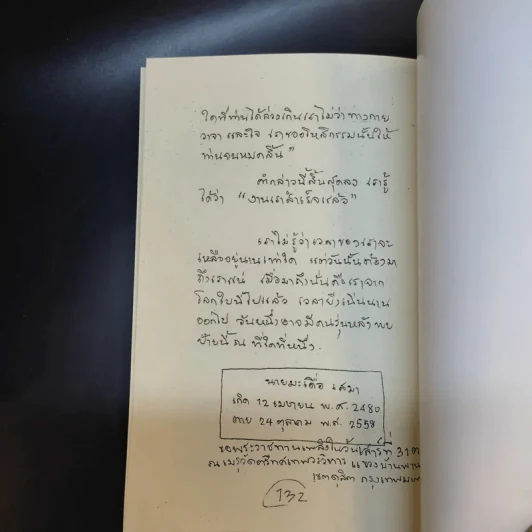 ใดที่ท่านได้ล่วงเกินเราไม่ว่าทางกาย
วาจา และใจ เราขออโหสิกรรมนั้นให้
ท่านจนหมดสิ้น"
คำกล่าวนี้สิ้นสุดลง เรารู้
ได้ว่า "งานเราสำเร็จแล้ว"
เราไม่รู้ว่าเวลาของเราจะ
เหลืออยู่นานเท่าใด แต่วันนั้นต้องมา
ถึงเราแน่ เมื่อมาถึงนั่นคือเราจาก
โลกใบนี้ไปแล้ว เวลายิ่งเนิ่นนาน
ออกไป วันหนึ่งอาจมีคนรุ่นหลังพบ
ป้ายนี้ ณ ที่ใดที่หนึ่ง.
นายมะเดื่อ เสมา
เกิด 12 เมษายน พ.ศ. 2480
ตาย 24 ตุลาคม พ.ศ. 2558
ขอพระราชทานเพลิงในวันเสาร์ที่ 31 ต
ณ เมรุวัดตรีทศเทพวรวิหาร แขวงบ้านพาน
เขตดุสิต กรุงเทพมห
132